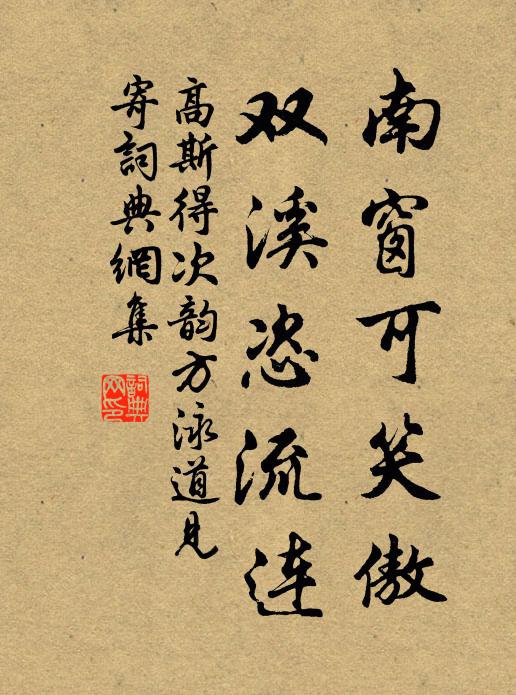 南窗可笑傲
双溪恣流连
高斯得次韵方泳道见
寄詞典網集
詞典
网印